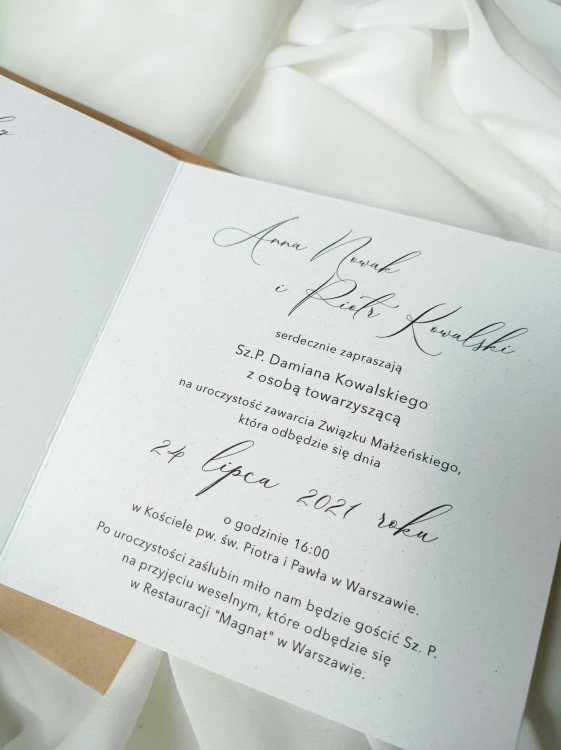 Anna Nowak
i Piotr Kowalski
serdecznie zapraszają
Sz.P. Damiana Kowalskiego
z osobą towarzyszącą
na uroczystość zawarcia Związku Małżeńskiego,
która odbędzie się dnia
24 lipca 2021 roku
o godzinie 16:00
w Kościele pw. św. Piotra i Pawła w Warszawie.
Po uroczystości zaślubin miło nam będzie gościć Sz. P.
na przyjęciu weselnym, które odbędzie się
w Restauracji "Magnat" w Warszawie.